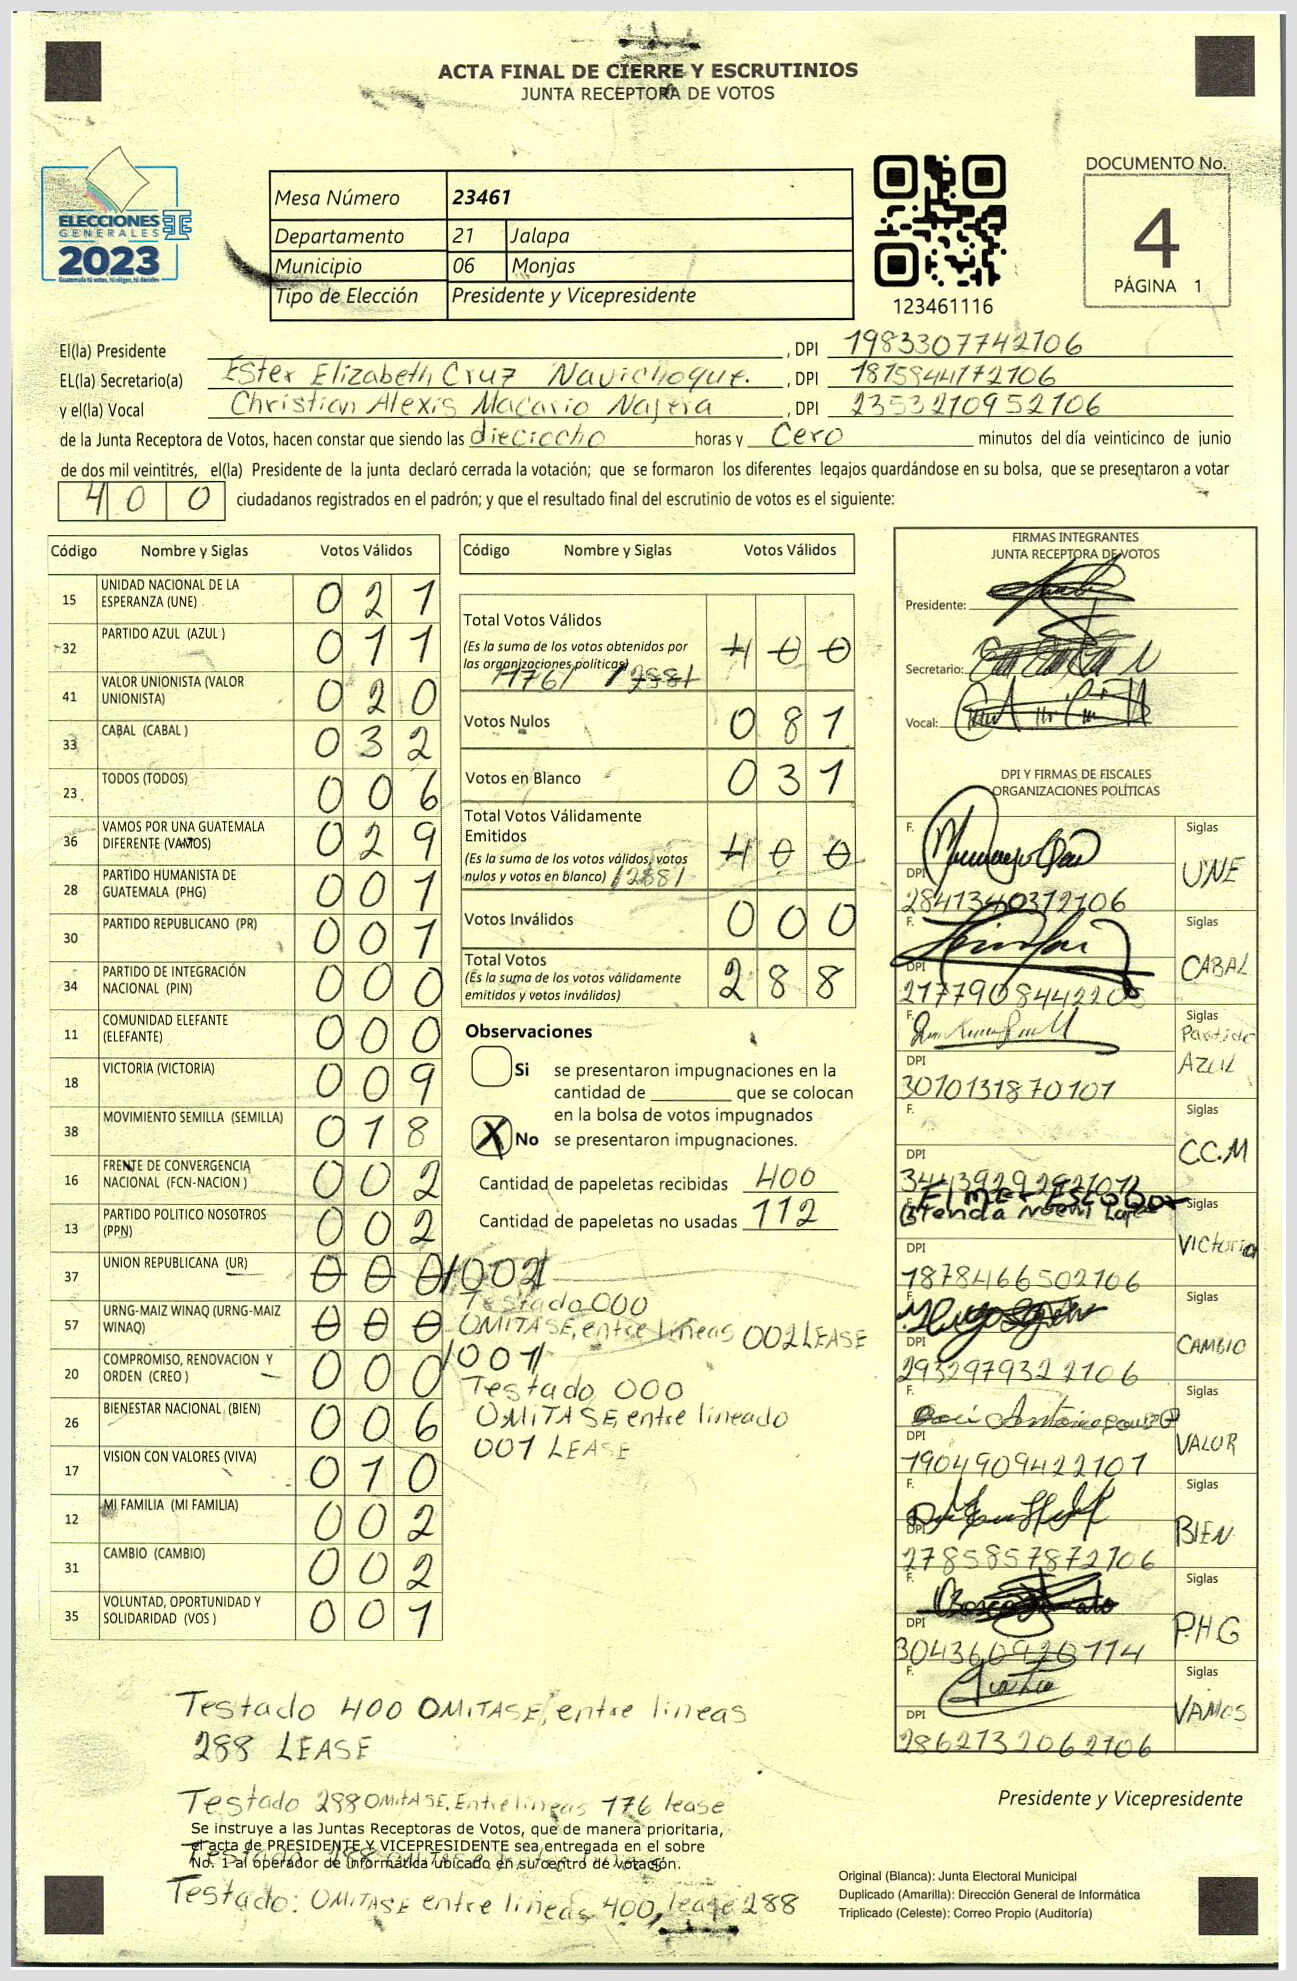 ACTA FINAL DE CIERRE Y ESCRUTINIOS
JUNTA RECEPTORA DE VOTOS
ELECCIONES
GENERALES
2023
Mesa Número 23461
Departamento 21 Jalapa
Municipio 06 Monjas
Tipo de Elección Presidente y Vicepresidente
123461116
DOCUMENTO No.
4
PÁGINA 1
El(la) Presidente , DPI 1983307742106
EL(la) Secretario(a) Ester Elizabeth Cruz Navichoque. , DPI 1815944172106
y el(la) Vocal Christian Alexis Macario Najera , DPI 2353210952106
de la Junta Receptora de Votos, hacen constar que siendo las dieciocho horas y Cero minutos del día veinticinco de junio
de dos mil veintitrés, el(la) Presidente de la junta declaró cerrada la votación; que se formaron los diferentes legajos quardándose en su bolsa, que se presentaron a votar
400 ciudadanos registrados en el padrón; y que el resultado final del escrutinio de votos es el siguiente:
Código Nombre y Siglas Votos Válidos
15 UNIDAD NACIONAL DE LA ESPERANZA (UNE) 021
32 PARTIDO AZUL (AZUL ) 011
41 VALOR UNIONISTA (VALOR UNIONISTA) 020
33 CABAL (CABAL ) 032
23 TODOS (TODOS) 006
36 VAMOS POR UNA GUATEMALA DIFERENTE (VAMOS) 029
28 PARTIDO HUMANISTA DE GUATEMALA (PHG) 001
30 PARTIDO REPUBLICANO (PR) 001
34 PARTIDO DE INTEGRACIÓN NACIONAL (PIN) 000
11 COMUNIDAD ELEFANTE (ELEFANTE) 000
18 VICTORIA (VICTORIA) 009
38 MOVIMIENTO SEMILLA (SEMILLA) 018
16 FRENTE DE CONVERGENCIA NACIONAL (FCN-NACION ) 002
13 PARTIDO POLITICO NOSOTROS (PPN) 002
37 UNION REPUBLICANA (UR) 000 /002/
57 URNG-MAIZ WINAQ (URNG-MAIZ WINAQ) 000
20 COMPROMISO, RENOVACION Y ORDEN (CREO ) 000 /001/
26 BIENESTAR NACIONAL (BIEN) 006
17 VISION CON VALORES (VIVA) 010
12 MI FAMILIA (MI FAMILIA) 002
31 CAMBIO (CAMBIO) 002
35 VOLUNTAD, OPORTUNIDAD Y SOLIDARIDAD (VOS ) 001
Código Nombre y Siglas Votos Válidos
Total Votos Válidos 400
(Es la suma de los votos obtenidos por
las organizaciones políticas)
/176/ /288/
Votos Nulos 081
Votos en Blanco 031
Total Votos Válidamente
Emitidos 400
(Es la suma de los votos válidos, votos
nulos y votos en blanco) /288/
Votos Inválidos 000
Total Votos 288
(Es la suma de los votos válidamente
emitidos y votos inválidos)
Observaciones
Si se presentaron impugnaciones en la
cantidad de ________ que se colocan
en la bolsa de votos impugnados
X No se presentaron impugnaciones.
Cantidad de papeletas recibidas 400
Cantidad de papeletas no usadas 112
Testado 000
OMITASE, entre líneas 002 LEASE
Testado 000
OMITASE, entre lineado
001 LEASE
FIRMAS INTEGRANTES
JUNTA RECEPTORA DE VOTOS
Presidente:
Secretario:
Vocal:
DPI Y FIRMAS DE FISCALES
ORGANIZACIONES POLÍTICAS
F. Siglas UNE
DPI 2841340372106
F. Siglas CABAL
DPI 2177908442205
F. Siglas Partido AZUL
DPI 3010131870101
F. Siglas C.C.M
DPI
Siglas Victoria
DPI 1878466502106
F. Siglas CAMBIO
DPI 2932979322106
F. Siglas VALOR
DPI 1904909422101
F. Siglas BIEN
DPI 2785857872106
F. Siglas PHG
DPI 3043660920114
F. Siglas VAMOS
DPI 2862132062106
Testado 400 OMITASE, entre lineas
288 LEASE
Testado 288 OMITASE. Entre lineas 176 lease
Se instruye a las Juntas Receptoras de Votos, que de manera prioritaria,
el acta de PRESIDENTE Y VICEPRESIDENTE sea entregada en el sobre
No. 1 al operador de informática ubicado en su centro de votación.
Testado: OMITASE entre lineas 400, lease 288
Presidente y Vicepresidente
Original (Blanca): Junta Electoral Municipal
Duplicado (Amarilla): Dirección General de Informática
Triplicado (Celeste): Correo Propio (Auditoría)